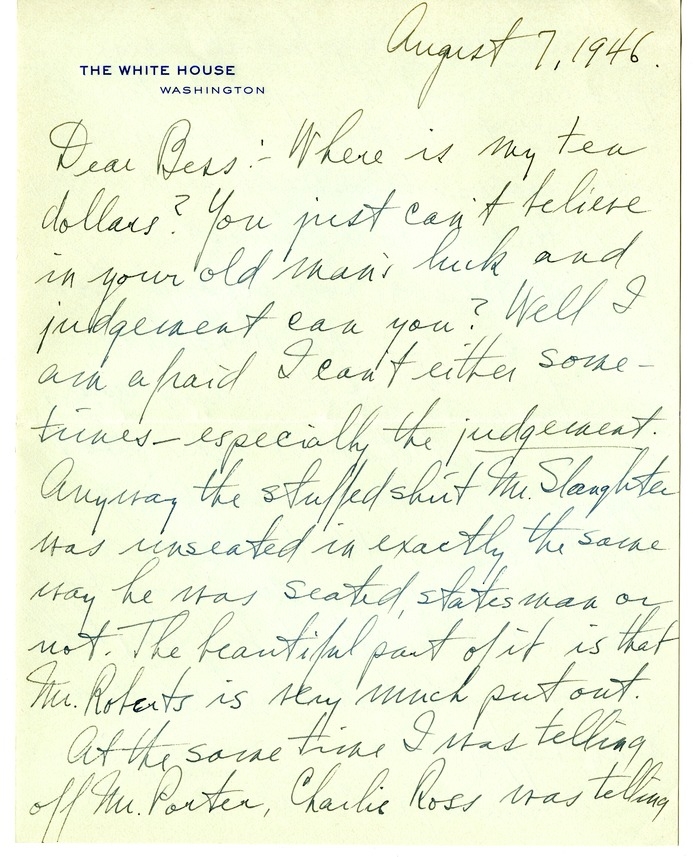 August 7, 1946.
THE WHITE HOUSE
WASHINGTON
Dear Bess:- Where is my ten
dollars? You just can't believe
in your old man's luck and
judgement can you? Well I
am afraid I can't either some-
times—especially the judgement.
Anyway the stuffed shirt Mr. Slaughter
was unseated in exactly the same
way he was seated, statesman or
not. The beautiful part of it is that
Mr. Roberts is very much put out.
At the same time I was telling
off Mr. Porter, Charlie Ross was telling